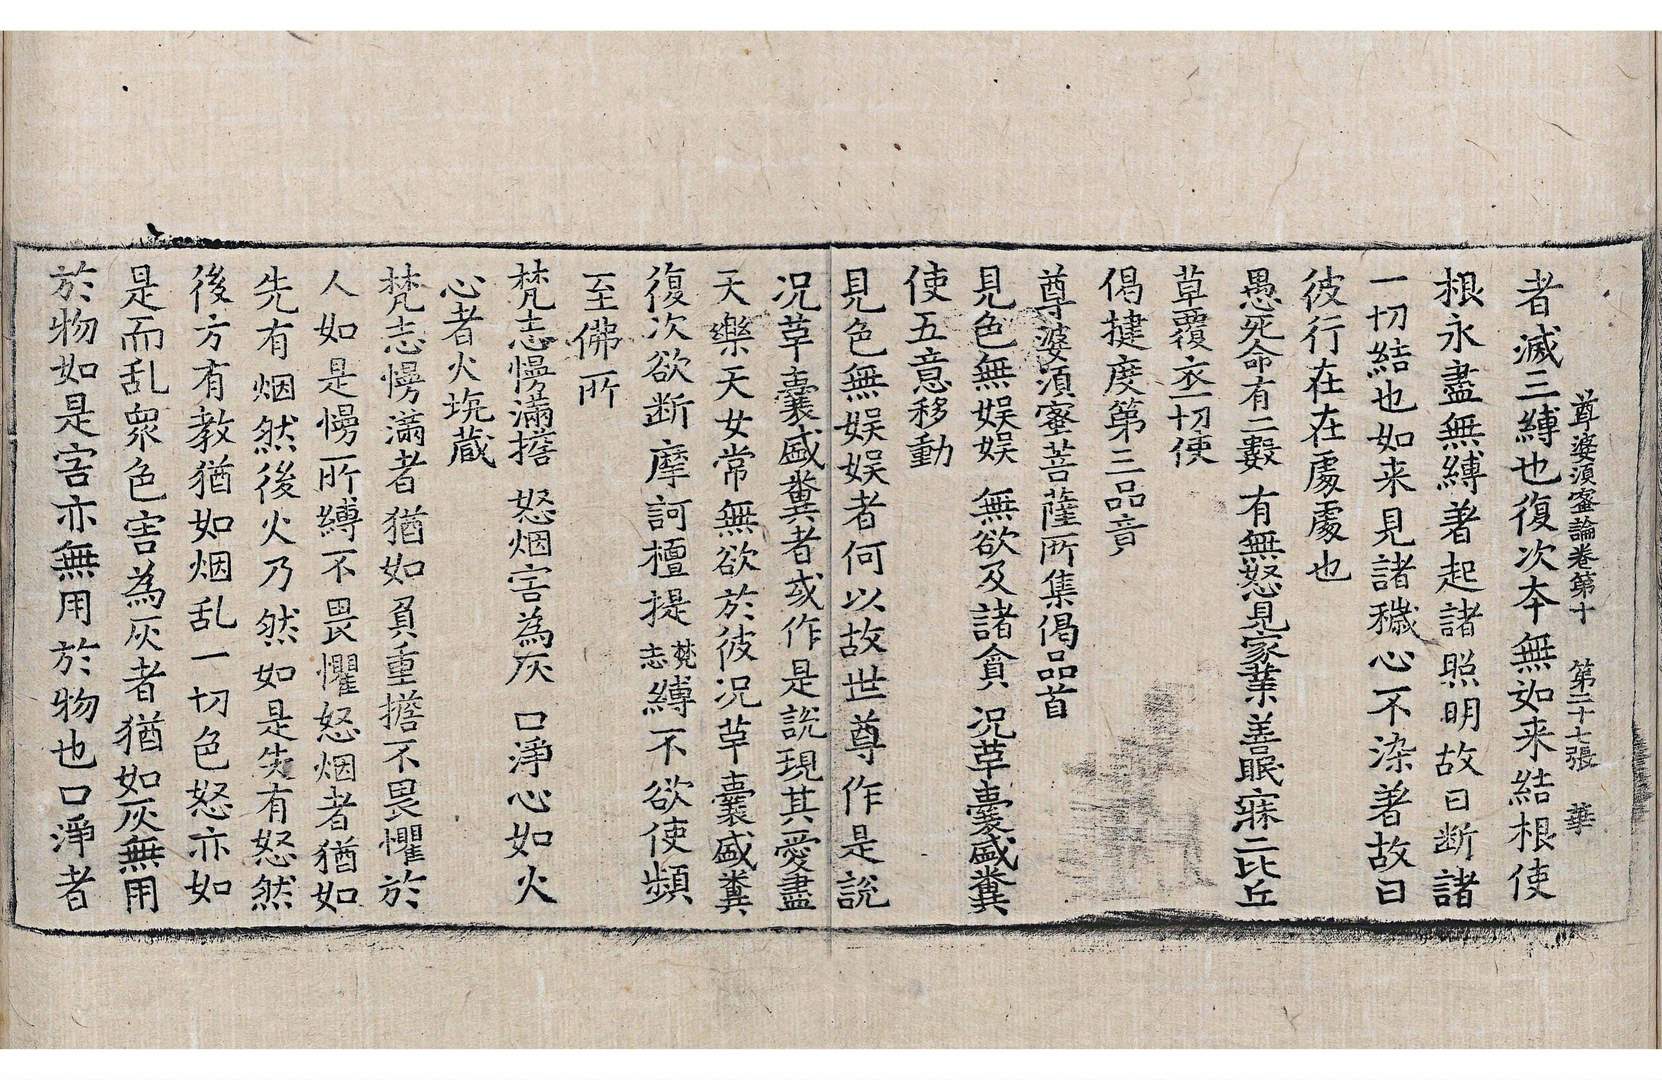 尊婆湏蜜論卷第十　第二十七張　華
者滅三縛也復次夲無如来結根使
根永盡無縛著起諸照明故曰断諸
一切結也如来見諸穢心不染著故曰
彼行在在處處也
愚死命有二數　有無怒見家業善眠寐二比丘
草覆衣一切使
偈揵度第三品音
尊婆湏蜜菩薩所集偈品首
見色無娛娛　無欲及諸貪　況草囊盛糞
使五意移動
見色無娛娛者何以故世尊作是說
況草囊盛糞者或作是說現其愛盡
天樂天女常無欲於彼況草囊盛糞
復次欲断摩訶檀提梵志縛不欲使頻
至佛所
梵志慢滿擔　怒烟害為灰　口淨心如火
心者火坑藏
梵志慢滿者猶如負重擔不畏懼於
人如是慢所縛不畏懼怒烟者猶如
先有烟然後火乃然如是先有怒然
後方有教猶如烟乱一切色怒亦如
是而乱衆色害為灰者猶如灰無用
於物如是害亦無用於物也口淨者